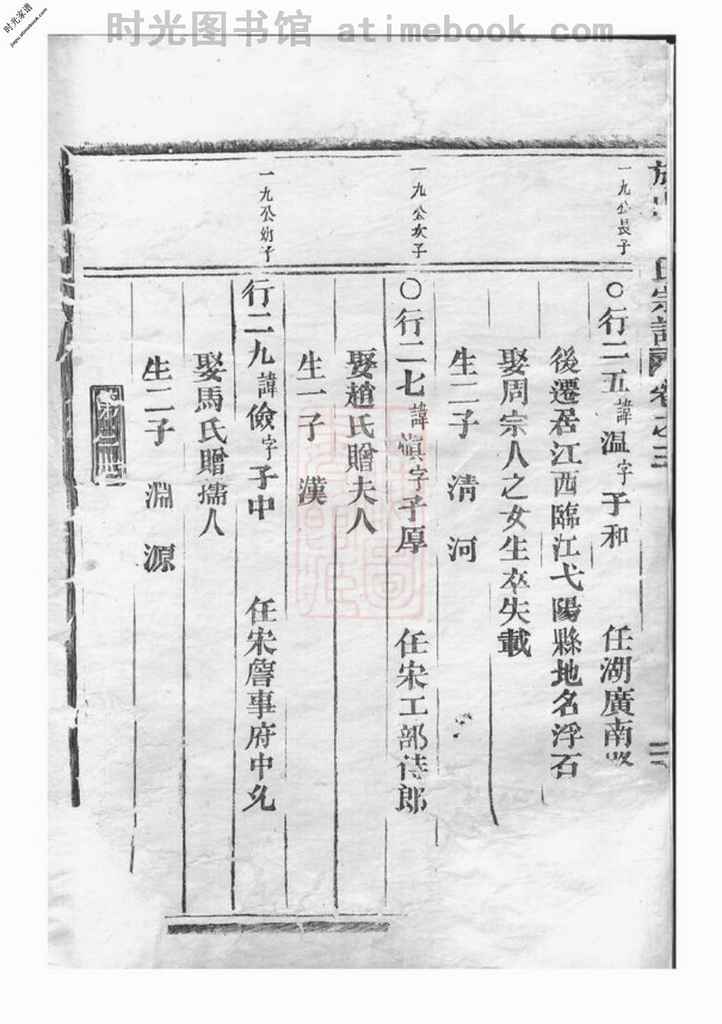 时光图书馆 atimebook.com
时光家谱
jiapu.atimebook.com
氏宗譜 卷之三
一九公長子
○行二五諱溫字子和 任湖廣南
後遷居江西臨江弋陽縣地名浮石
娶周宗人之女生卒失載
生二子 清 河
一九公次子
○行二七諱 字子厚 任宋工部侍郎
娶趙氏贈夫人
生一子 漢
一九公幼子
行二九諱儉字子中 任宋詹事府中允
娶馬氏贈孺人
生二子 淵 源